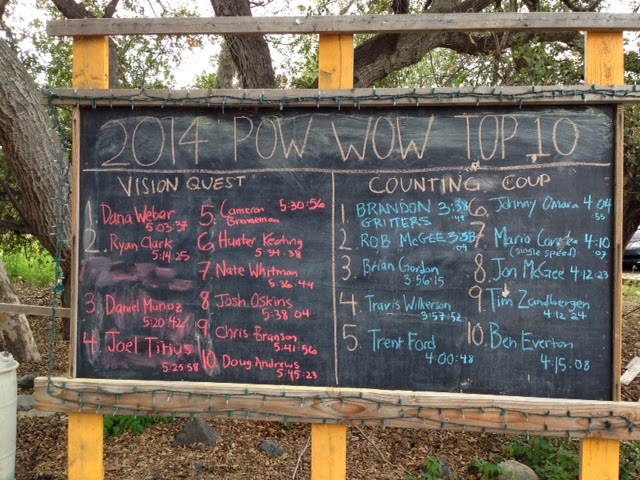 2014 POW WOW TOP 10
VISION QUEST
1. Dana Weber
5:03:37
2. Ryan Clark
5:14:25
3. Daniel Munoz
5:20:42
4. Joel Titius
5:25:58
5. Cameron 5:30:56
Brenneman
6 Hunter Keating
5:34:38
7 Nate Whitman
5:36:44
8 Josh Oskins
5:38:04
9 Chris Branson
5:41:56
10 Doug Andrews
5:45:23
COUNTING COUP
1. BRANDON 3:38
GRITTERS
2. ROB McGEE
3. Brian Gordon
3:56:15
4 Travis Wilkerson
3:57:52
5. Trent Ford
4:00:48
6. Johnny O'mara 4:04
55
7 Mario 4:10
(single speed) 07
8. Jon McGee 4:12:23
9. Tim Zandbergen
4:12:24
10. Ben Everton
4:15:08